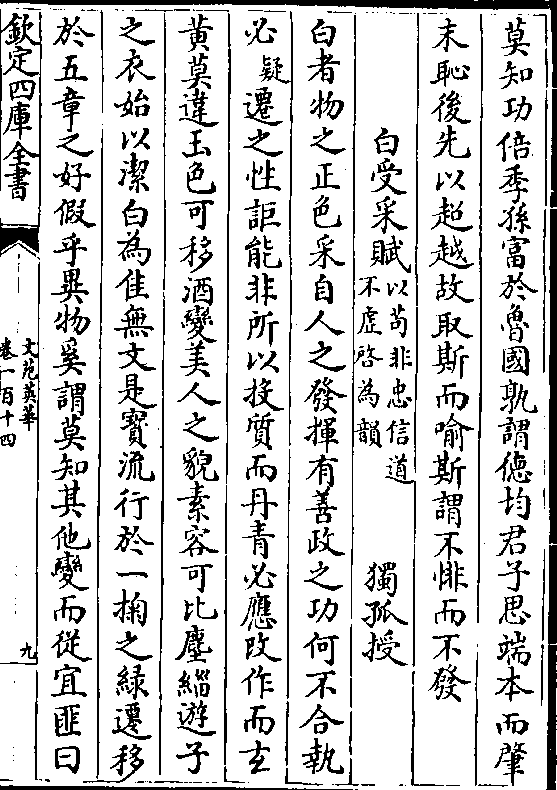 莫知功倍季孫富於魯國孰謂德均君子思端本而肇
末恥後先以超越故取斯而喻斯謂不悱而不發
白受采賦以苟非忠信道不虛啓為韻 獨孤授
白者物之正色采自人之發揮有善政之功何不合執
必疑遷之性詎能非所以投質而丹青必應改作而玄
黃莫違玉色可移酒變美人之貌素容可比塵緇遊子
之衣始以潔白為佳無文是寳流行於一掬之緑遷移
於五章之好假乎異物奚謂莫知其他變而從宜匪曰
欽定四庫全書
文苑英華
卷一百十四
九